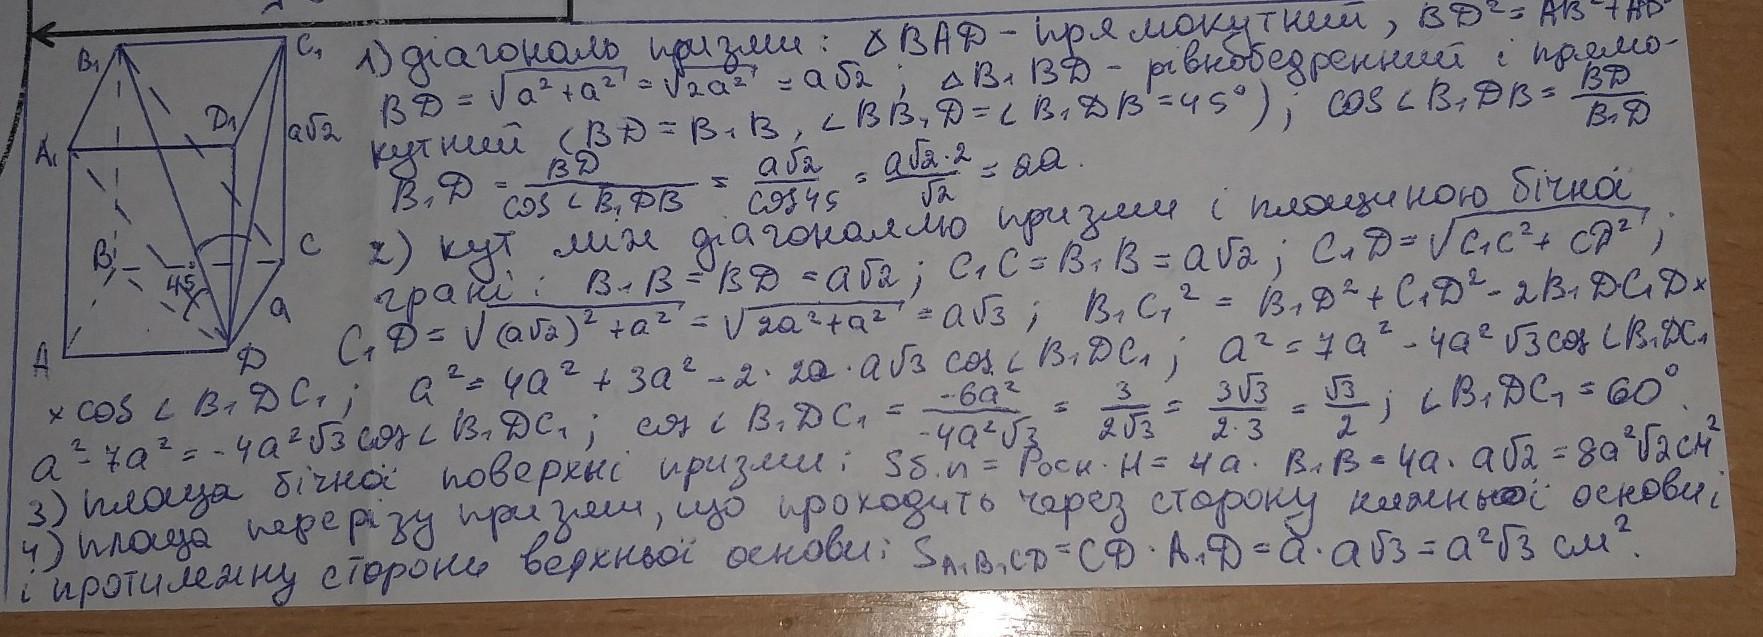 B₁
C₁
D₁
A₁
a√2
B
C
45°
a
A
D
1) діагональ призми: △BAD - прямокутний, BD² = AB² + AD²
BD = √a² + a² = √2a² = a√2; △B₁BD - рівнобедренний і прямо-
кутний (BD = B₁B, ∠BB₁D = ∠B₁DB = 45°); cos∠B₁DB = BD/B₁D
B₁D = BD/cos∠B₁DB = a√2/cos45 = a√2·2/√2 = 2a.
2) кут між діагоналлю призми і площиною бічної
грані: B₁B = BD = a√2; C₁C = B₁B = a√2; C₁D = √C₁C² + CD²;
C₁D = √(a√2)² + a² = √2a² + a² = a√3; B₁C₁² = B₁D² + C₁D² - 2B₁DC₁D×
×cos∠B₁DC₁; a² = 4a² + 3a² - 2·2a·a√3 cos∠B₁DC₁; a² = 7a² - 4a²√3cos∠B₁DC₁
a² - 7a² = -4a²√3cos∠B₁DC₁; cos∠B₁DC₁ = -6a²/-4a²√3 = 3/2√3 = 3√3/2·3 = √3/2; ∠B₁DC₁ = 60°.
3) площа бічної поверхні призми: Sб.п = Pосн·H = 4a·B₁B = 4a·a√2 = 8a²√2см²
4) площа перерізу призми, що проходить через сторону нижньої основи і
і протилежну сторони верхньої основи: S_A₁B₁CD = CD·A₁D = a·a√3 = a²√3 см².